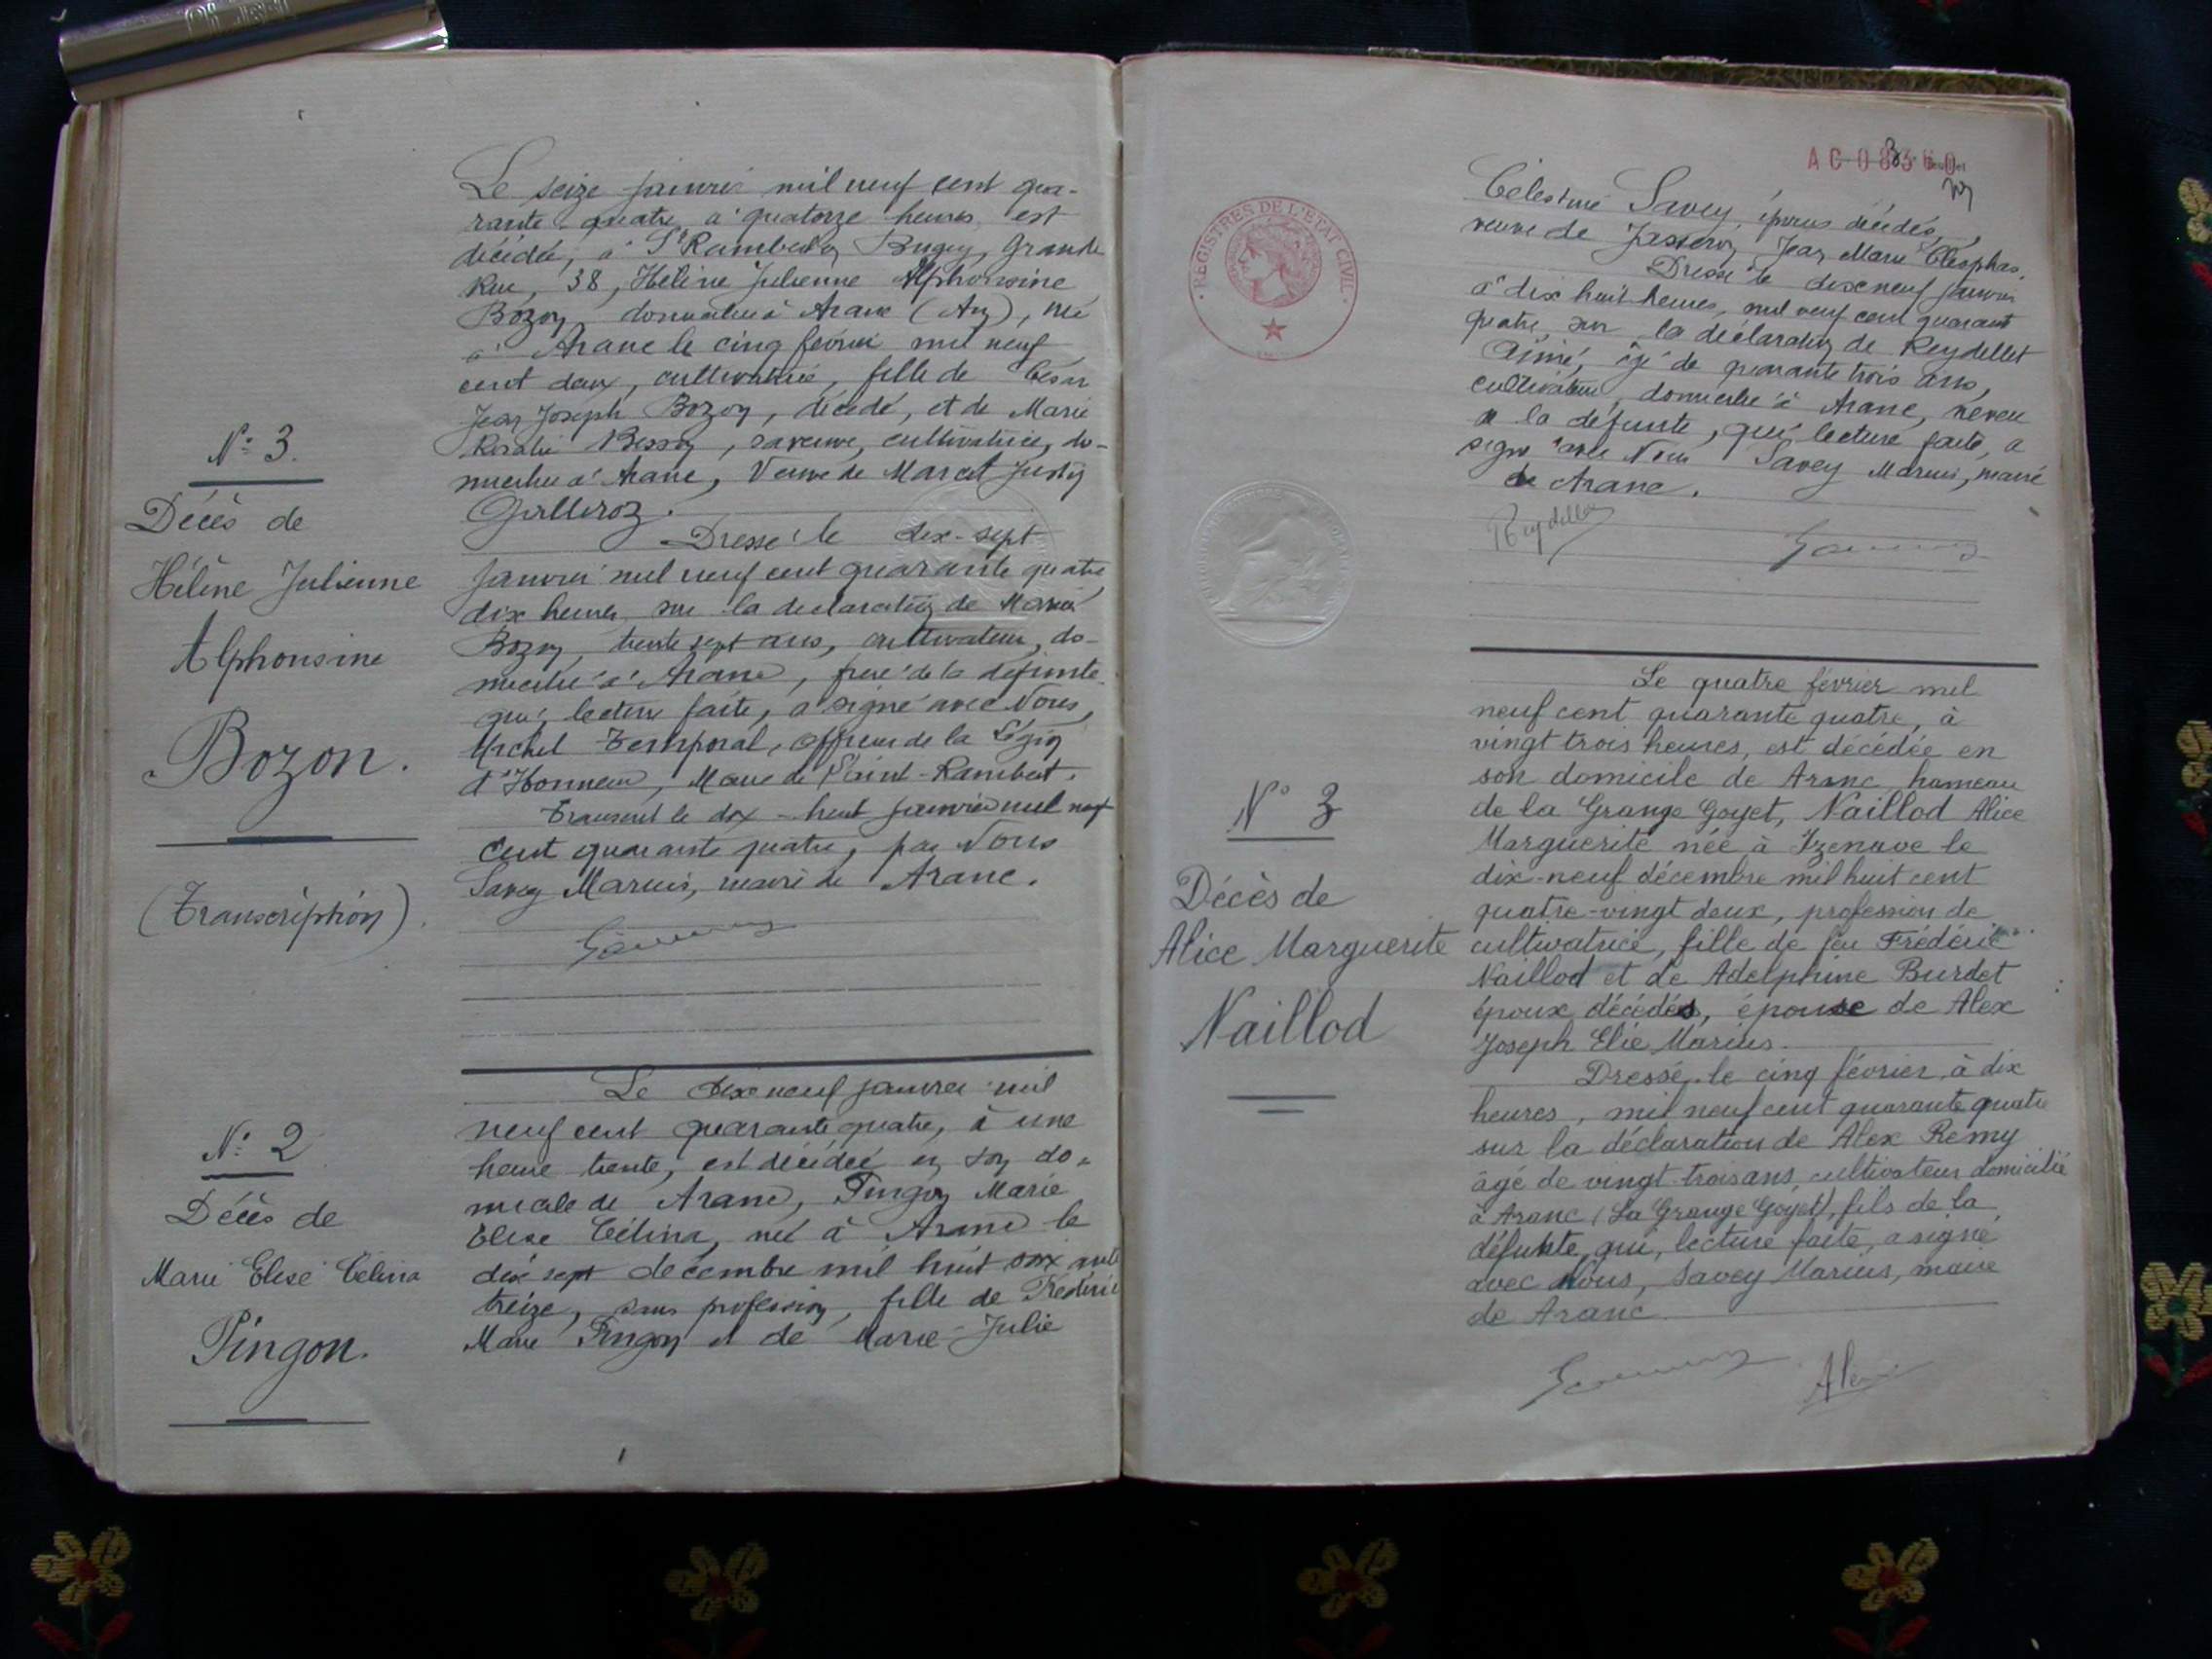 N° 3.
Décès de
Hélène Julienne
Alphonsine
Bozon.
(Transcription)
Le seize janvier mil neuf cent qua-
rante quatre, à quatorze heures, est
décédée, à St Rambert en Bugey, Grande
Rue, 38, Hélène Julienne Alphonsine
Bozon, domiciliée à Aranc (Ain), née
à Aranc le cinq février mil neuf
cent deux, cultivatrice, fille de César
Jean Joseph Bozon, décédé, et de Marie
Rosalie Besson, sa veuve, cultivatrice, do-
miciliée à Aranc, Veuve de Marcel Justin
Dressé le dix-sept
janvier mil neuf cent quarante quatre
dix heures, sur la déclaration de Marius
Bozon, trente sept ans, cultivateur, do-
micilié à Aranc, frère de la défunte
qui, lecture faite, a signé avec Nous,
Michel Temporal, officier de la Légion
d'Honneur, Maire de Saint-Rambert.
Transcrit le dix-huit janvier mil neuf
cent quarante quatre, par Nous
Savey Marius, maire de Aranc.
N° 2
Décès de
Marie Elise Célina
Pingon.
Le dix neuf janvier mil
neuf cent quarante quatre, à une
heure trente, est décédée en son do-
micile de Aranc, Pingon Marie
Elise Célina, née à Aranc le
dix sept décembre mil huit soixante
treize, sans profession, fille de Frédéric
Marie Pingon et de Marie-Julie
REGISTRES DE L'ETAT CIVIL
Célestine Savey, époux décédés,
veuve de Jasseron Jean Marie Cléophas.
Dressé le dix neuf janvier
à dix huit heures, mil neuf cent quarante
quatre, sur la déclaration de Reydellet
Aimé, âgé de quarante trois ans,
cultivateur, domicilié à Aranc, neveu
de la défunte, qui lecture faite, a
signé avec Nous Savey Marius, maire
de Aranc.
Reydellet
N° 3
Décès de
Alice Marguerite
Naillod
Le quatre février mil
neuf cent quarante quatre, à
vingt trois heures, est décédée en
son domicile de Aranc, hameau
de la Grange Goyet, Naillod Alice
Marguerite née à Izenave le
dix-neuf décembre mil huit cent
quatre-vingt deux, profession de
cultivatrice, fille de feu Frédéric
Naillod et de Adelphine Burdet
époux décédés, épouse de Alex
Joseph Elie Marius.
Dressé le cinq février à dix
heures, mil neuf cent quarante quatre
sur la déclaration de Alex Rémy
âgé de vingt-trois ans, cultivateur domicilié
à Aranc (La Grange Goyet), fils de la
défunte, qui, lecture faite, a signé
avec Nous, Savey Marius, maire
de Aranc.
Alex